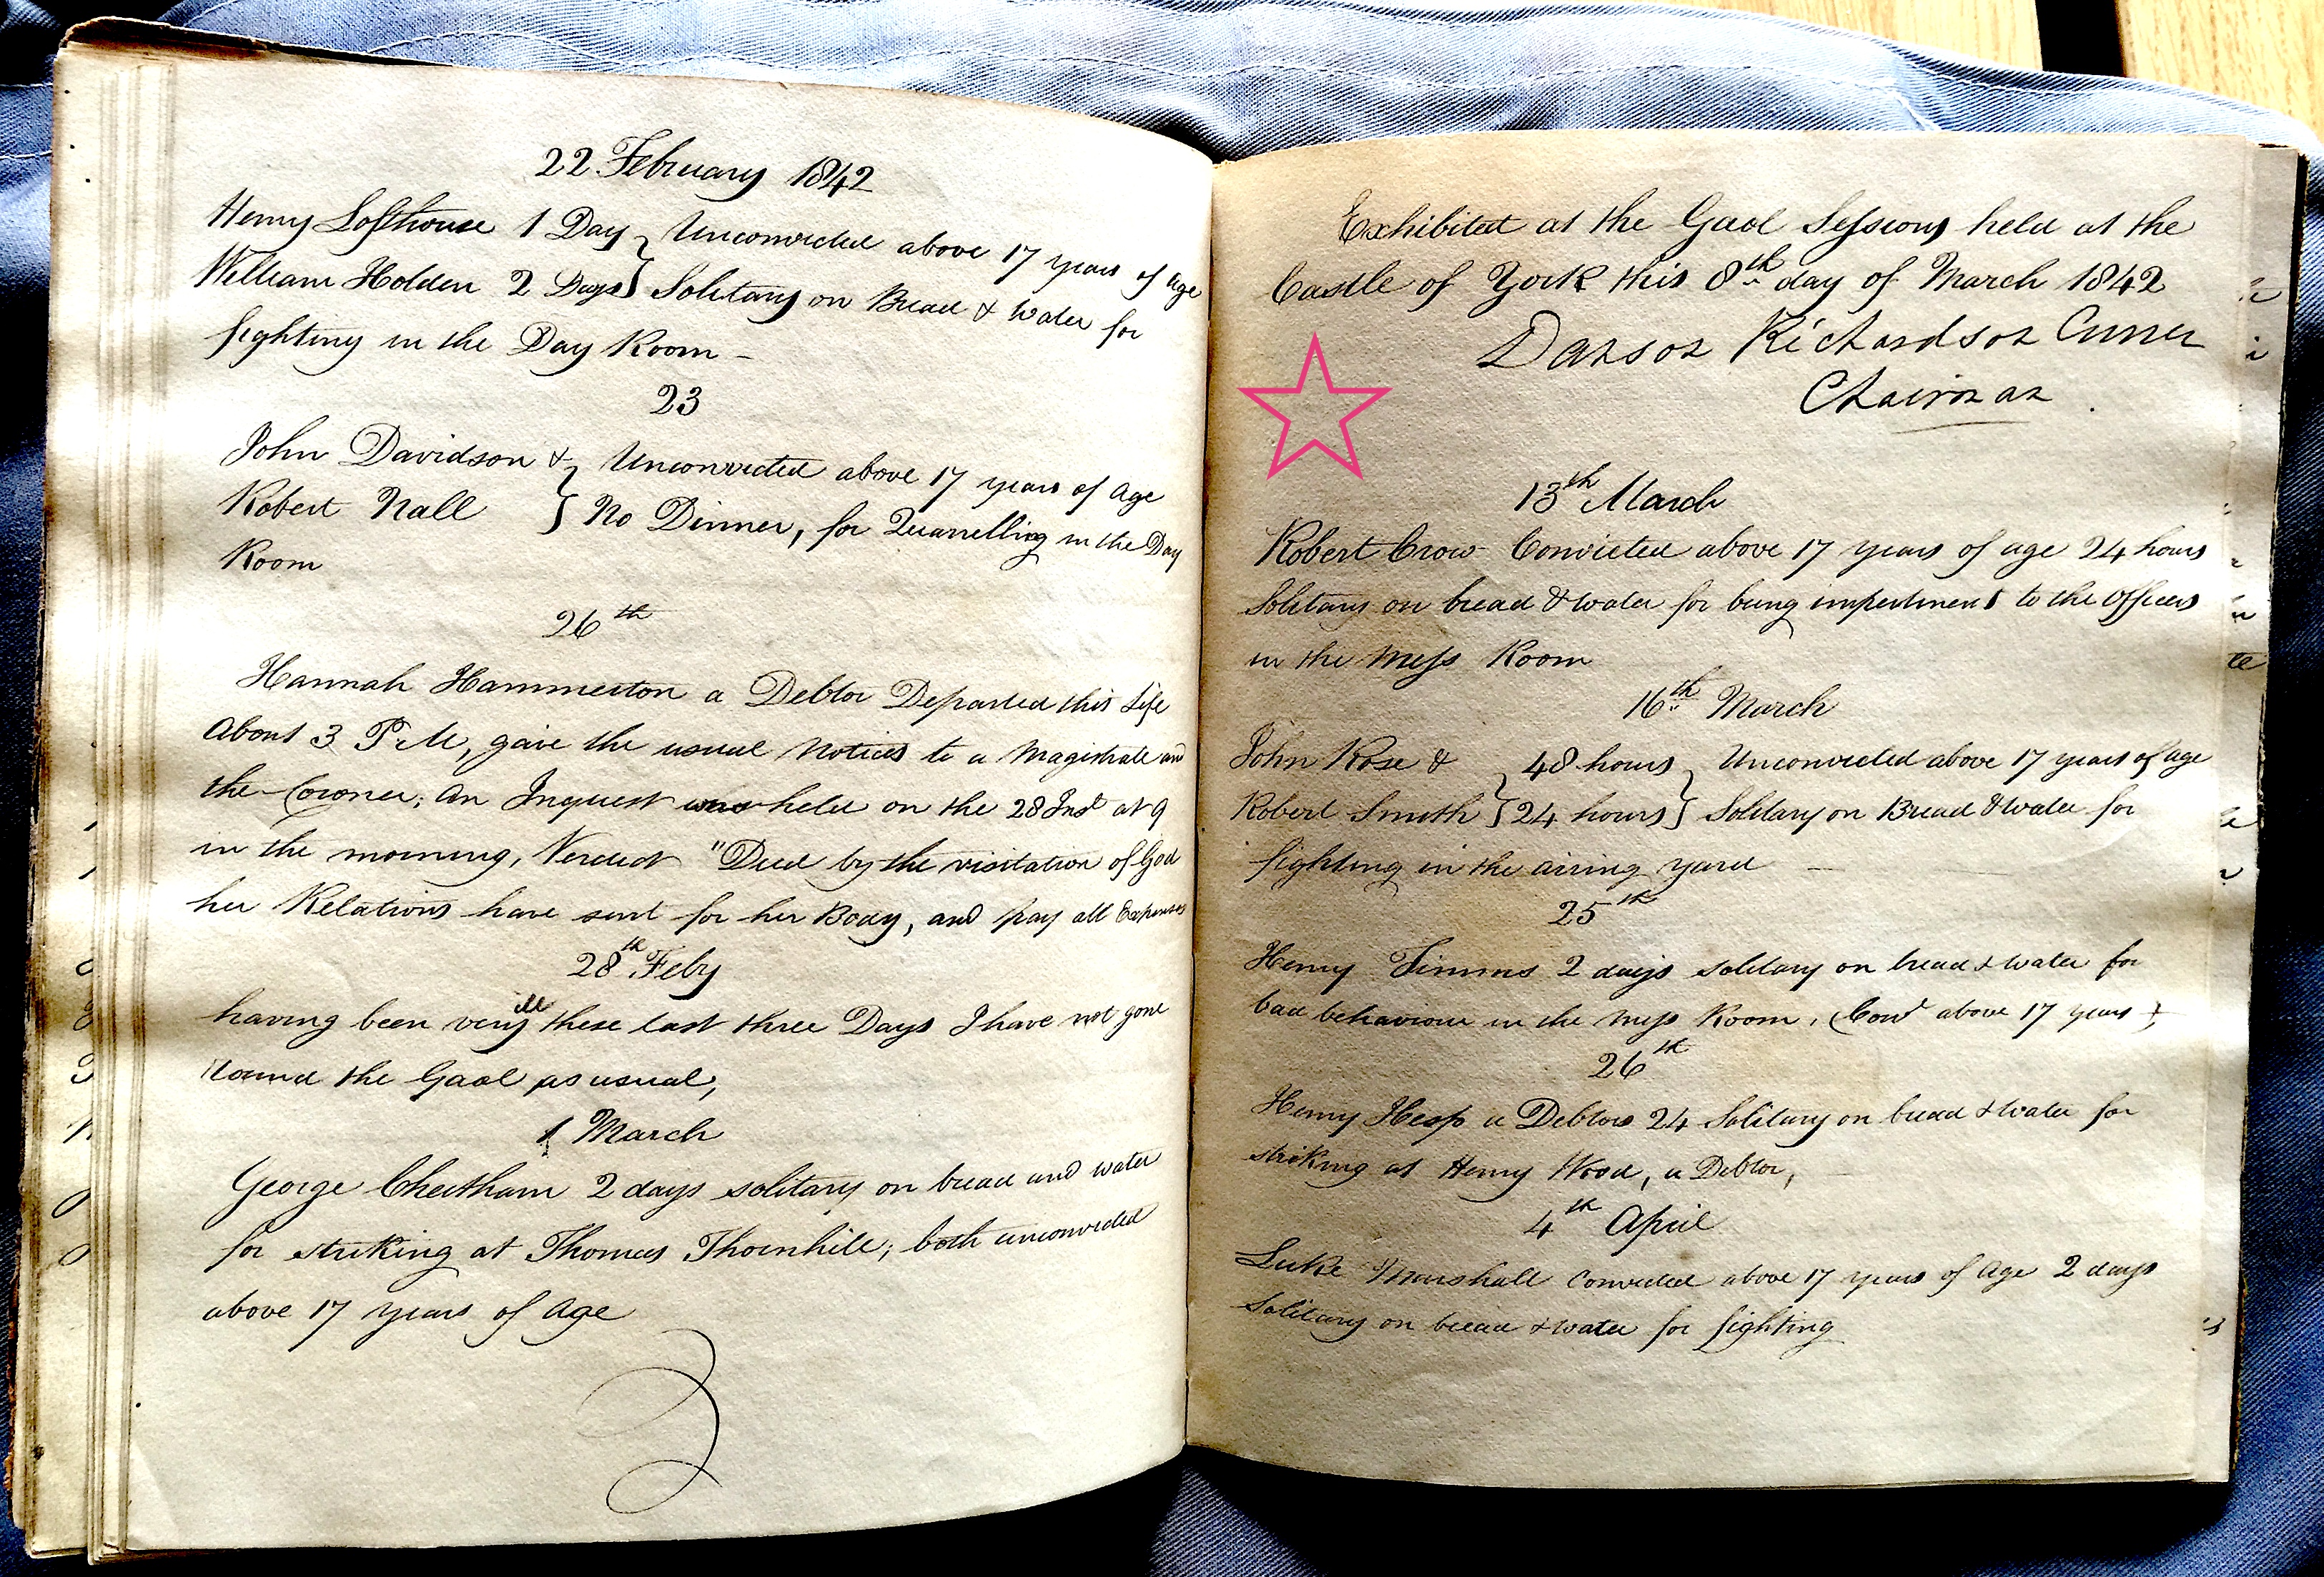 22 February 1842
Henry Lofthouse 1 Day } Unconvicted above 17 years of age
William Holden 2 Days } Solitary on Bread & Water for
fighting in the Day Room -
23
John Davidson & } Unconvicted above 17 years of age
Robert Nall } No Dinner, for Quarrelling in the Day
Room
26th
Hannah Hammerton a Debtor Departed this Life
About 3 P.M, gave the usual Notices to a Magistrate and
the Coroner; An Inquest was held on the 28 Inst at 9
in the morning, Verdict "Died by the visitation of God
her Relations have sent for her Body, and pay all Expenses
28th Feby
having been very ill these last three Days I have not gone
round the Gaol as usual,
1 March
George Cheetham 2 days solitary on bread and water
for striking at Thomas Thornhill; both unconvicted
above 17 years of Age
Exhibited at the Gaol Sessions held at the
Castle of York this 8th day of March 1842
Danson Richardson Currer
Chairman
13th March
Robert Crow Convicted above 17 years of age 24 hours
Solitary on bread & water for being impertinent to the Officers
in the Mess Room
16th March
John Rose & } 48 hours } Unconvicted above 17 years of age
Robert Smith } 24 hours } Solitary on Bread & Water for
fighting in the airing yard -
25th
Henry Timms 2 days solitary on bread & water for
bad behaviour in the mess Room, (Cond above 17 years),
26th
Henry Hesp a Debtor 24 Solitary on bread & water for
striking at Henry Wood, a Debtor,
4th April
Luke Marshall Convicted above 17 years of Age 2 days
Solitary on bread & water for fighting